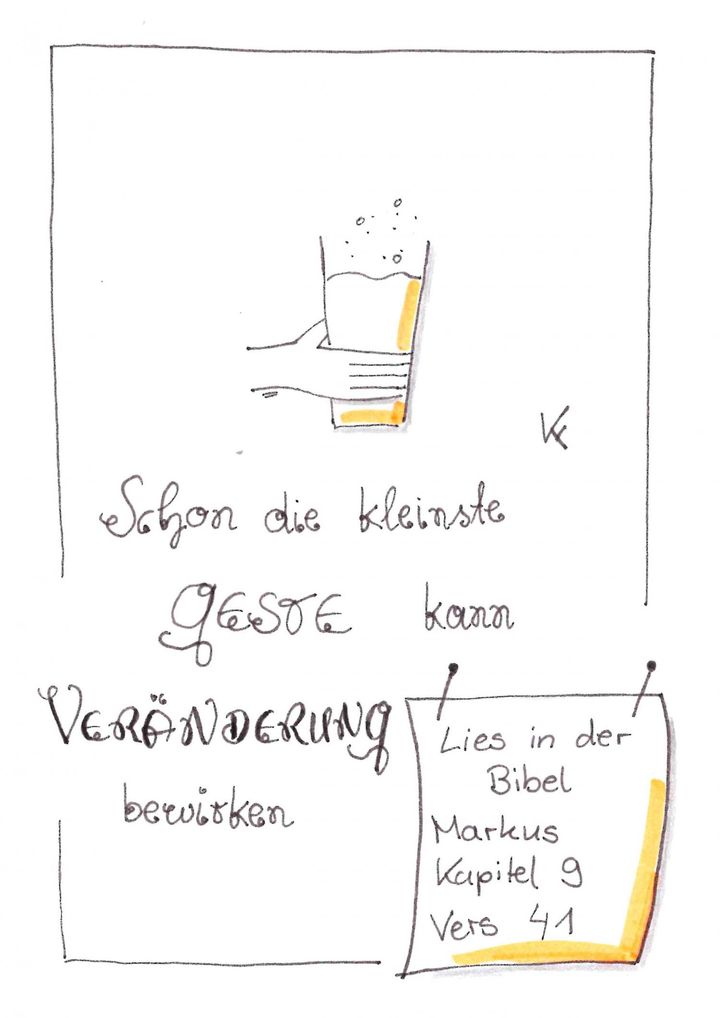 Schon die kleinste
GESTE kann
VERÄNDERUNG
bewirken
Lies in der
Bibel
Markus
Kapitel 9
Vers 41